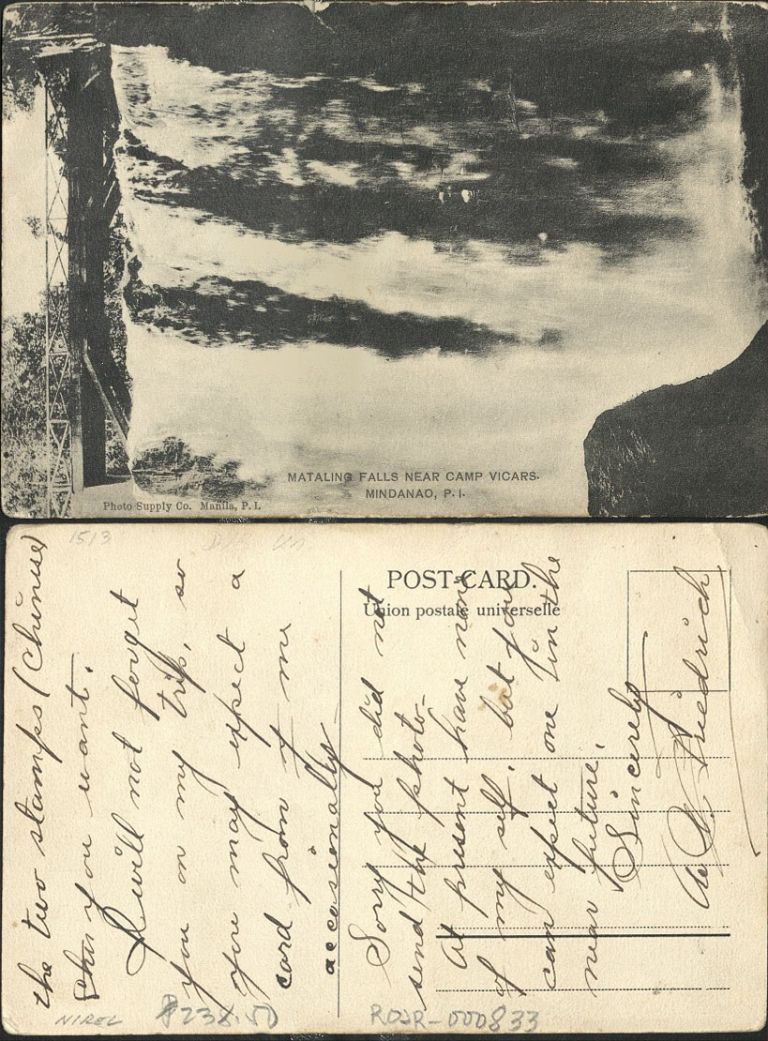 MATALING FALLS NEAR CAMP VICARS.
MINDANAO, P.I.
Photo Supply Co. Manila, P.I.
1513
POST-CARD.
Union postale universelle
the two stamps (Chinese)
you want.
I will not forget
you on my trip, so
you may expect a
card from me
accasionally
Sorry you did not
send the photo-
At present have none
of my self, but you
can expect one in the
near future.
Sincerely
Friedrich
NIREL
₱238.50
ROJR-000833